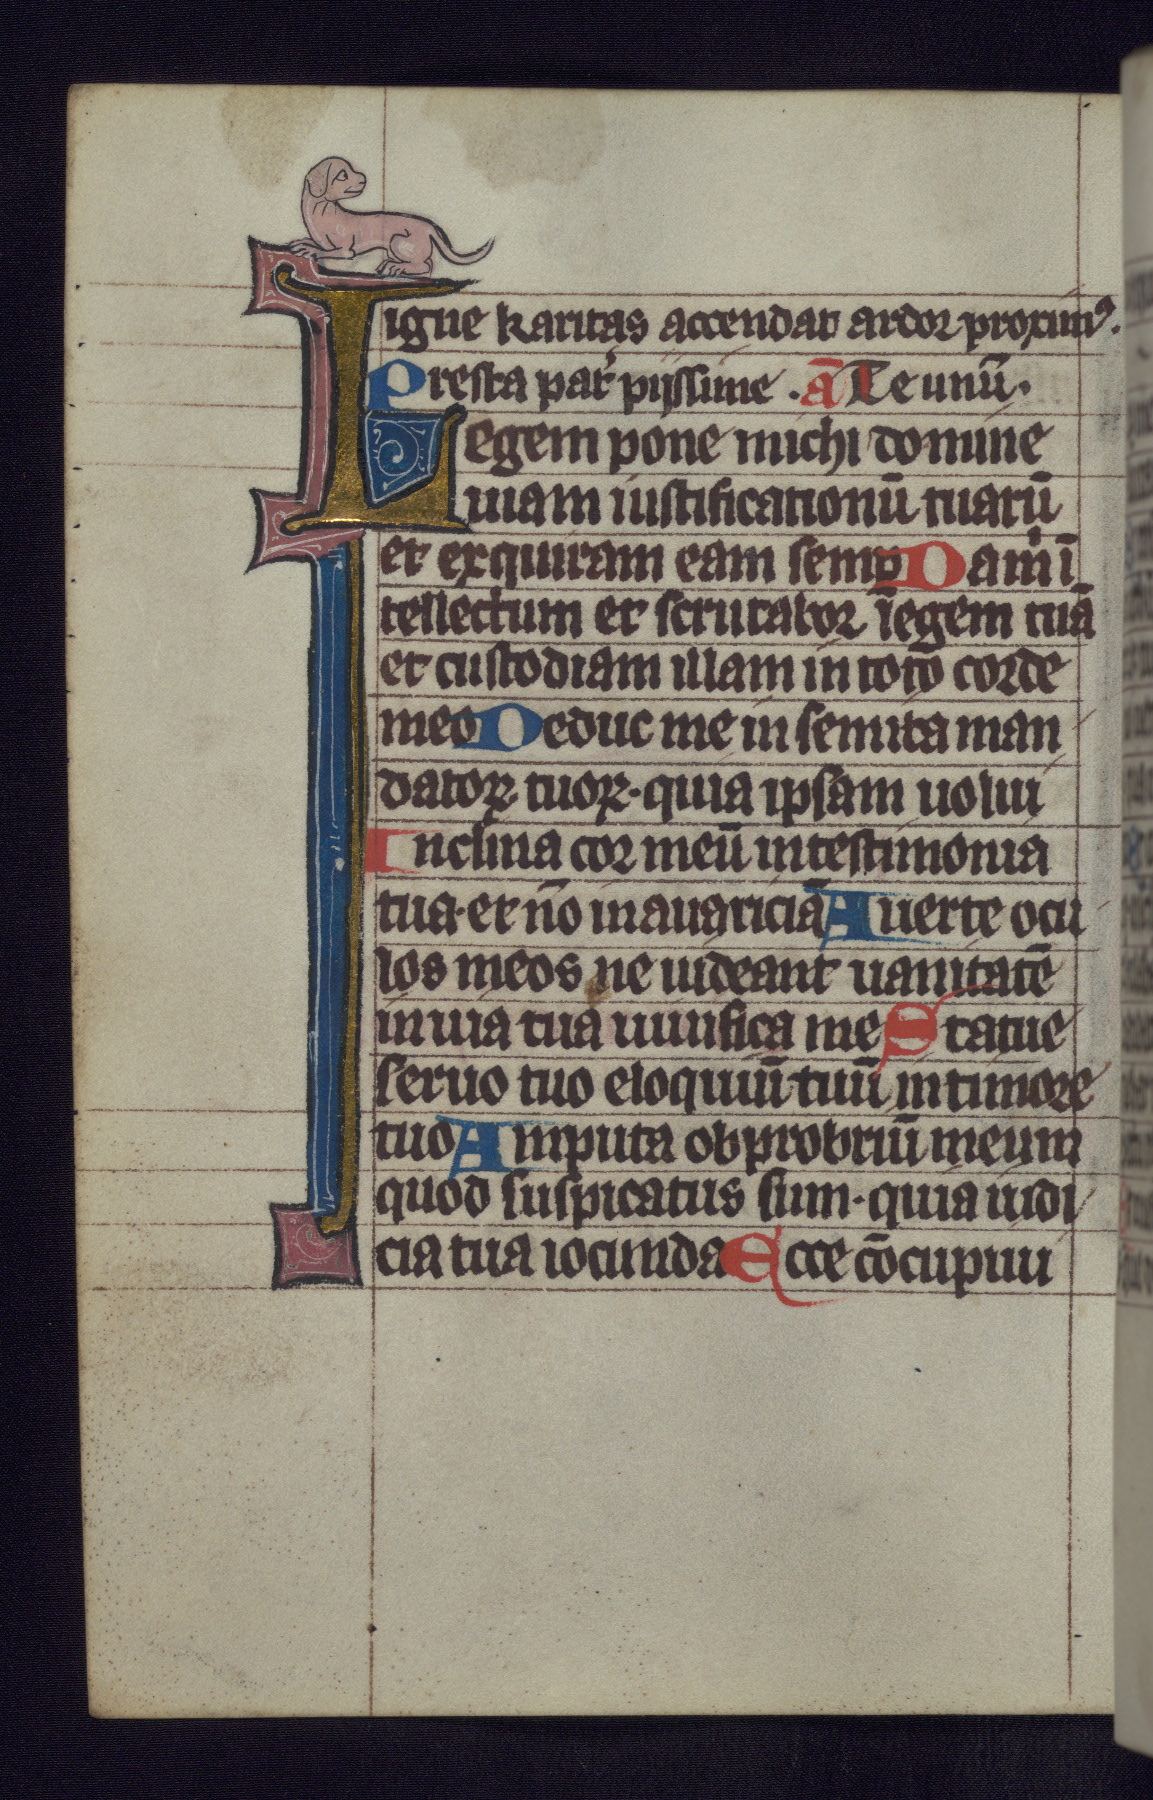 igne karitas accendat ardor proximꝰ.
Presta pat̾ pijssime . ā Te unū.
Legem pone michi domine
uiam iustificationū tuarū
et exquiram eam semp Da m̾ ī
tellectum et scrutabor legem tuā
et custodiam illam in toto corde
meo Deduc me in semita man
datoꝝ tuoꝝ · quia ipsam uolui
Inclina cor meū in testimonia
tua · et nō in auariciā Auerte ocu
los meos ne uideant uanitatē
in uia tua uiuifica me Statue
seruo tuo eloquiū tuū in timore
tuo Amputa obprobriū meum
quod suspicatus sum · quia iudi
cia tua iocunda Ecce cōcupiui